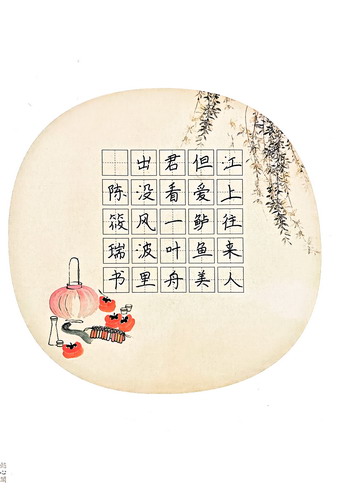 江上往来人
但爱鲈鱼美
君看一叶舟
出没风波里
陈筱瑞书